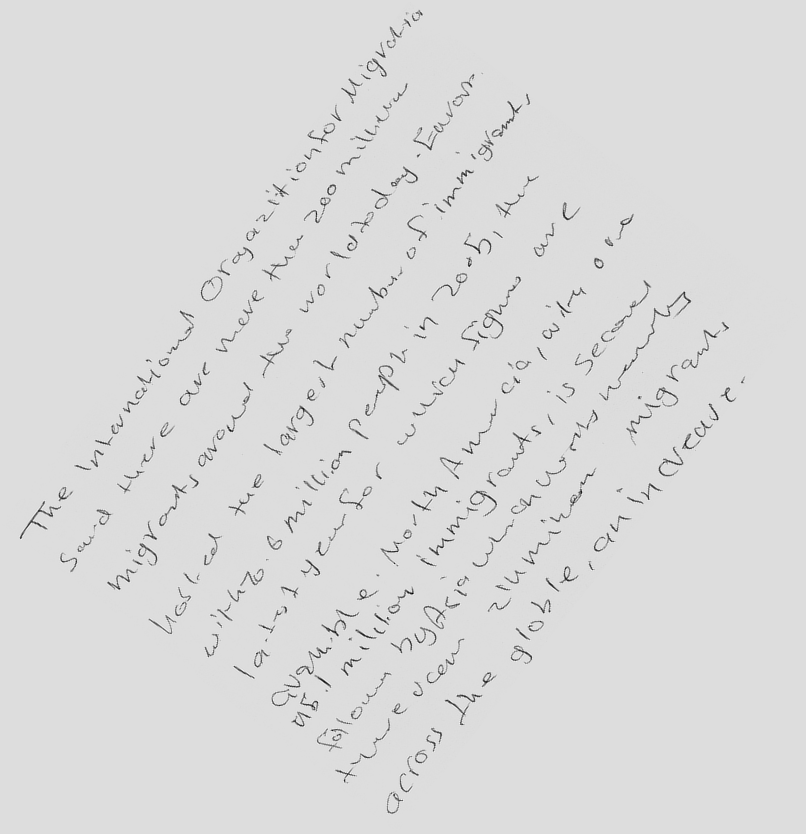 The International Orgazition for Migratio
Said there are more than 200 million
migrants around the world today. Europ
hosted the largest number of immigrants
with 70.6 million people in 2005, the
latest year for which figures are
avalible. North America, with over
45.1 million immigrants, is second
follown by Asia which
million migrants
across the globle, an increave.